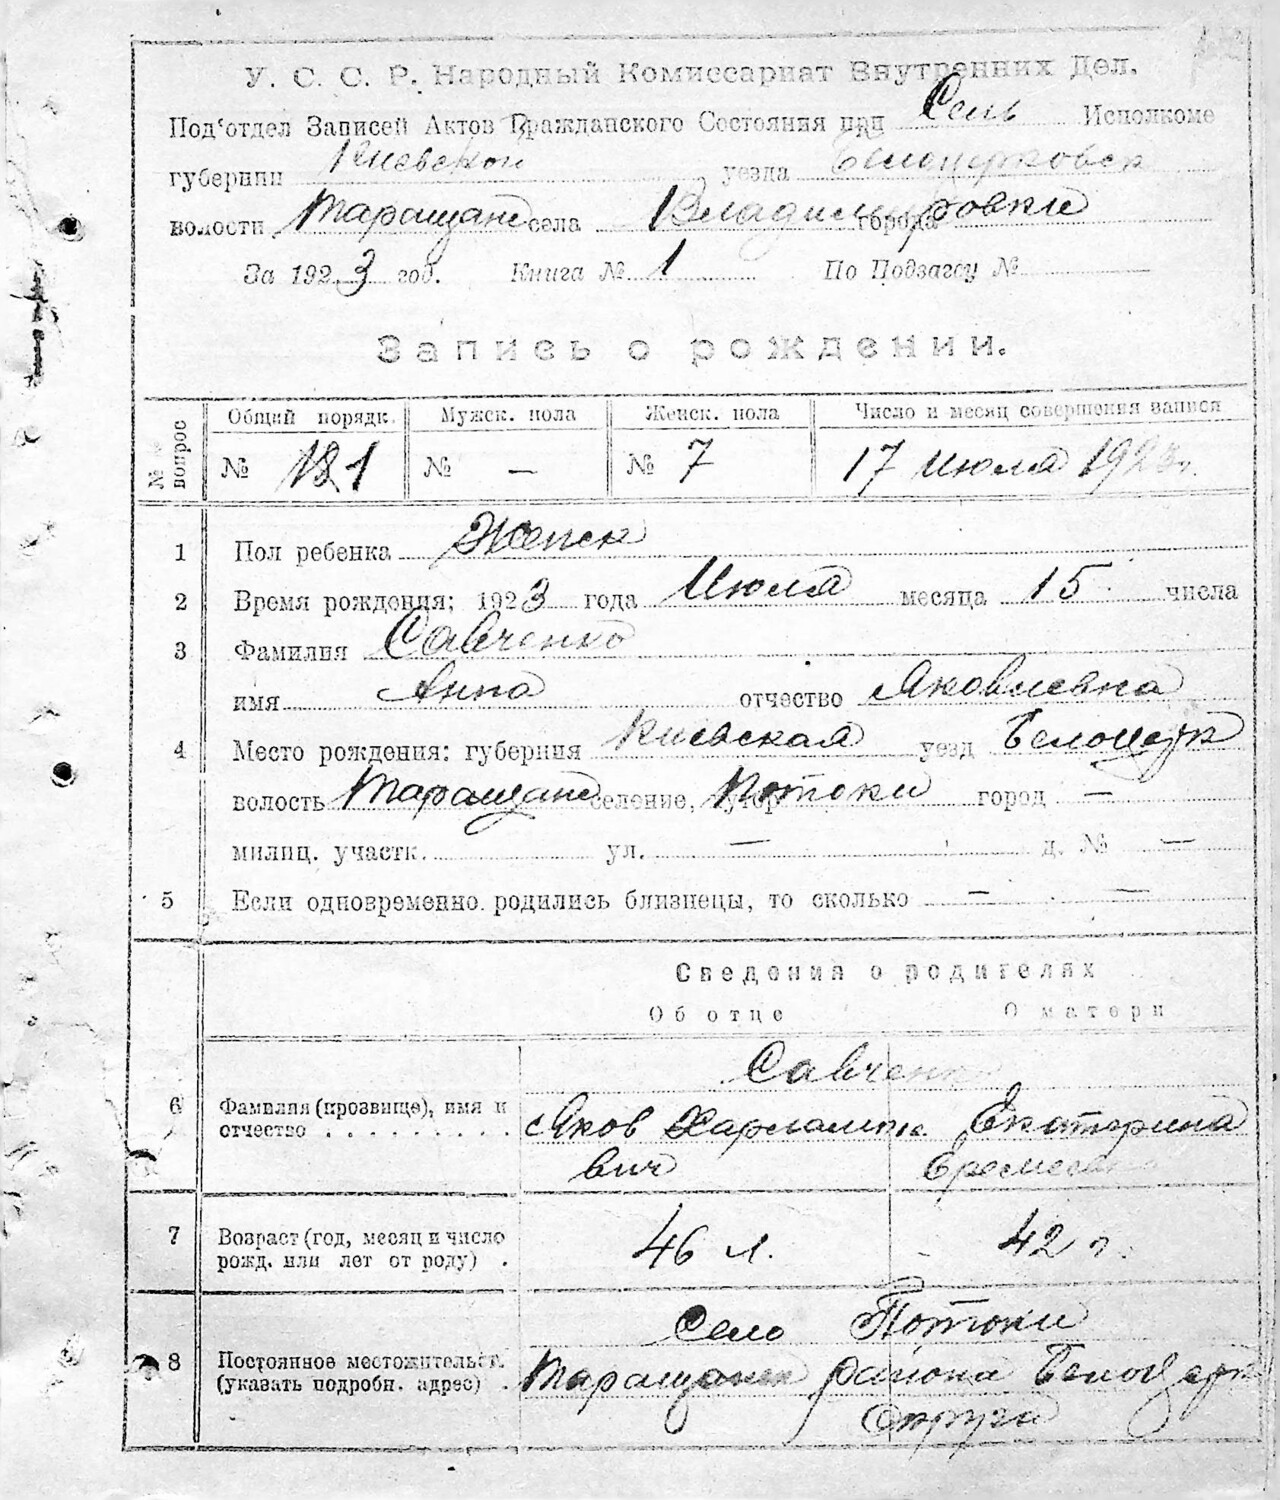 У. С. С. Р. Народный Комиссариат Внутренних Дел.
Под‘отдел Записей Актов Гражданского Состояния при Сель Исполкоме
губернии Киевской уезда Белоцерковск
волости Таращанс села Владимировки города
За 1923 год. Книга № 1 По Подзагсу №
Запись о рождении.
№ вопрос
Общий порядк. Мужск. пола Женск. пола Число и месяц совершения записи
№ № — № 7 17 Июля 1923 г.
1 Пол ребенка Женск
2 Время рождения: 1923 года Июля месяца 15 числа
3 Фамилия Савченко
имя Анна отчество Яковлевна
4 Место рождения: губерния Киевская уезд Белоцерк
волость Таращанс селение, хутор Потоки город —
милиц. участк. ул. — д. № —
5 Если одновременно родились близнецы, то сколько — —
Сведения о родителях
Об отце О матери
Савченко
6 Фамилия (прозвище), имя и
отчество . . . . . . . . . Яков Харлампие Екатерина
вич Еремеевна
7 Возраст (год, месяц и число
рожд. или лет от роду) . 46 л. 42 г.
Село Потоки
8 Постоянное местожительст.
(указать подробн. адрес) . Таращанск района Белоцерк
Округа